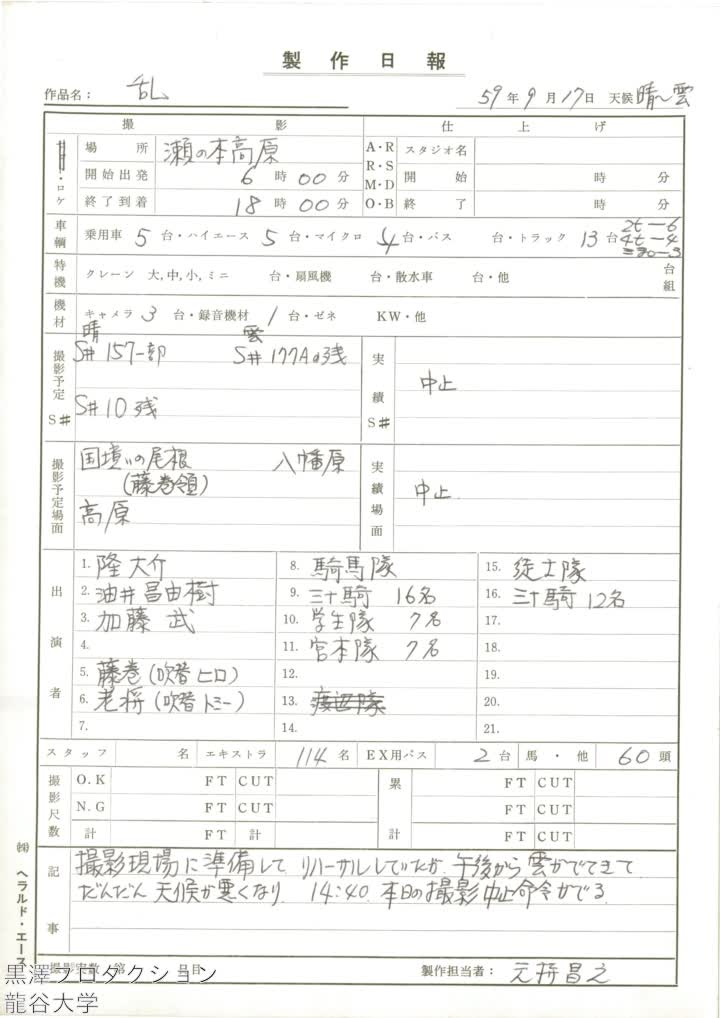 製作日報
作品名： 乱 59年9月17日 天候 晴〜雲
撮影 仕上げ
・ロケ
場所 瀬の本高原
開始出発 6時00分
終了到着 18時00分
A・R R・S M・D O・B
スタジオ名
開始 時 分
終了 時 分
車輌 乗用車 5 台・ハイエース 5 台・マイクロ 4 台・バス 台・トラック 13 台
2t－6
4t－4
特機 クレーン 大,中,小,ミニ 台・扇風機 台・散水車 台・他 台組
機材 キャメラ 3 台・録音機材 1 台・ゼネ KW・他
撮影予定 S#
晴 雲
S# 157一部 S# 177Aの残
S# 10残
実績 S#
中止
撮影予定場面
国境いの尾根 八幡原
(藤巻領)
高原
実績場面
中止
出演者
1. 隆大介
2. 油井昌由樹
3. 加藤 武
4.
5. 藤巻(吹替ヒロ)
6. 老将(吹替トミー)
7.
8. 騎馬隊
9. 三十騎 16名
10. 学生隊 7名
11. 宮本隊 7名
12.
13.
14.
15. 徒士隊
16. 三十騎 12名
17.
18.
19.
20.
21.
スタッフ 名 エキストラ 114名 EX用バス 2台 馬・他 60頭
撮影尺数
O.K FT CUT
N.G FT CUT
計 FT 計
累計
FT CUT
FT CUT
FT CUT
記事
撮影現場に準備して リハーサルしていたが、午後から雲がでてきて
だんだん天候が悪くなり、14:40、本日の撮影中止命令がでる
撮影実数 第 日目 製作担当者：
㈱ ヘラルド・エース
黒澤プロダクション
龍谷大学